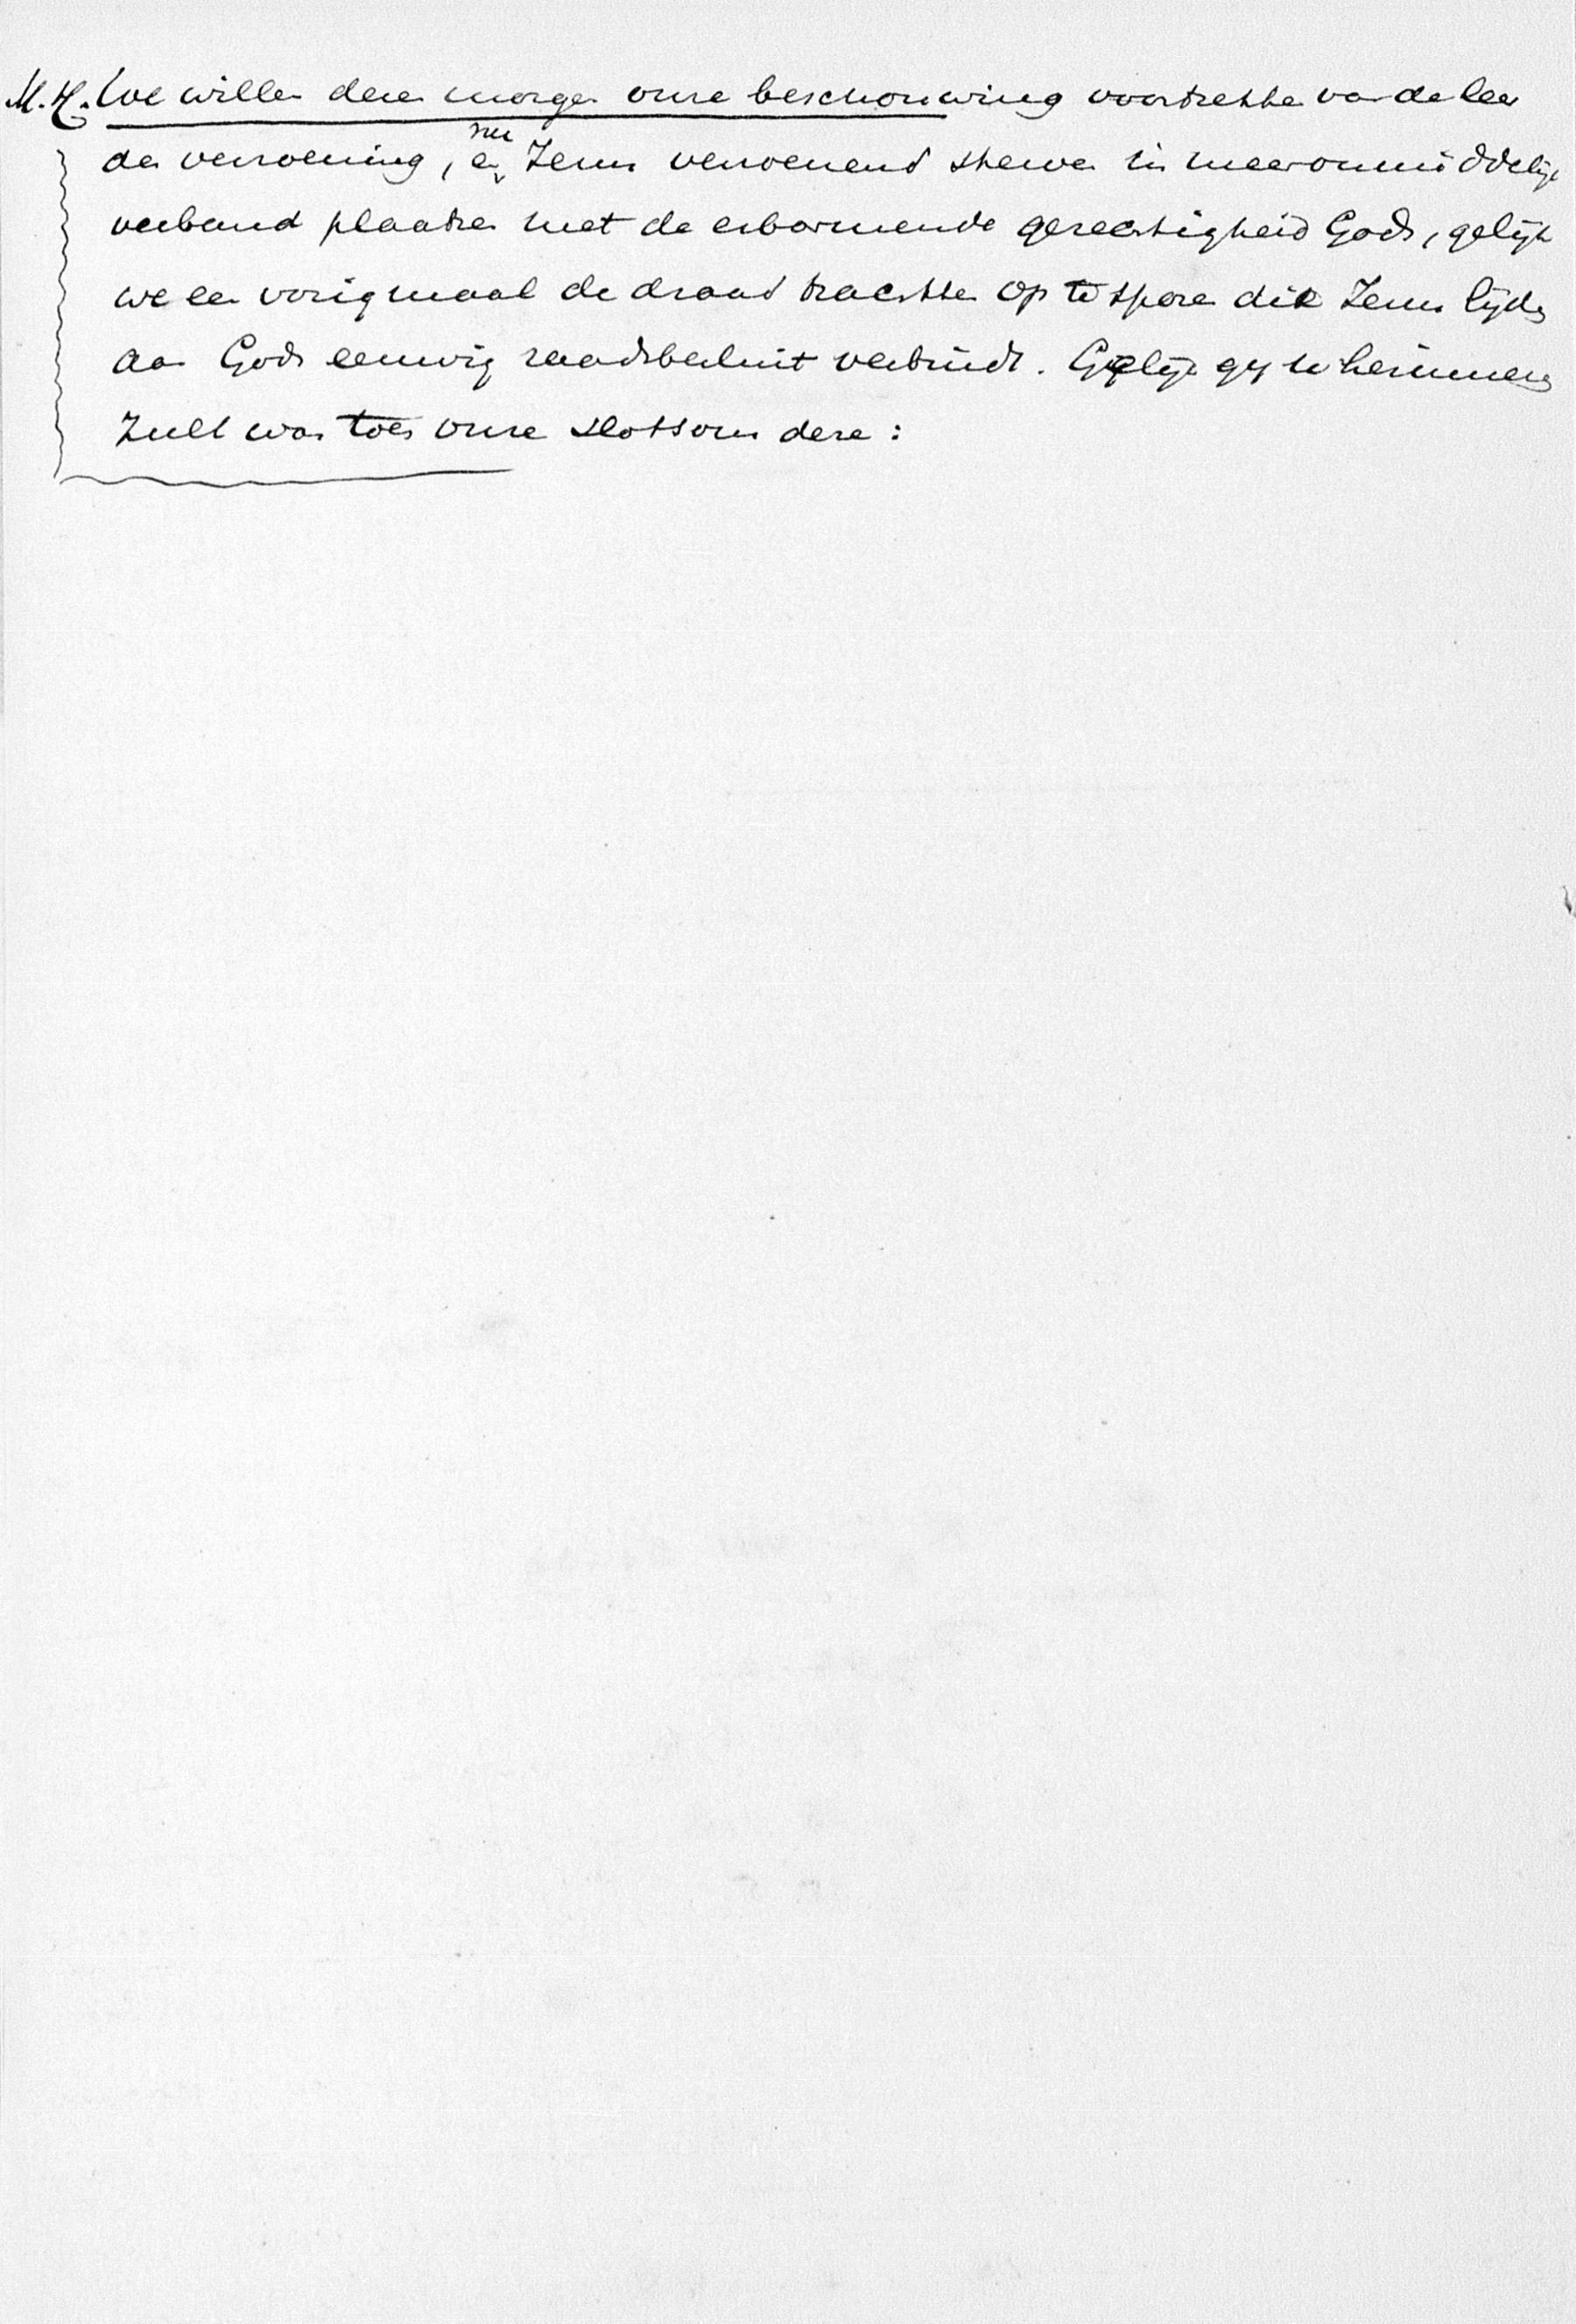 M.H. We willen dezen morgen onze beschouwing voortzetten van de leer
der verzoening, en nu Jezus verzoenend sterven in meer onmiddelijk
verband plaatsen met de erbarmende gerechtigheid Gods, gelijk
we een vorig maal de draad trachtten op te sporen die Jezus lijden
aan Gods eeuwig raadsbesluit verbindt. Gelijk gij u herinneren
zult was toen onze slotsom deze: